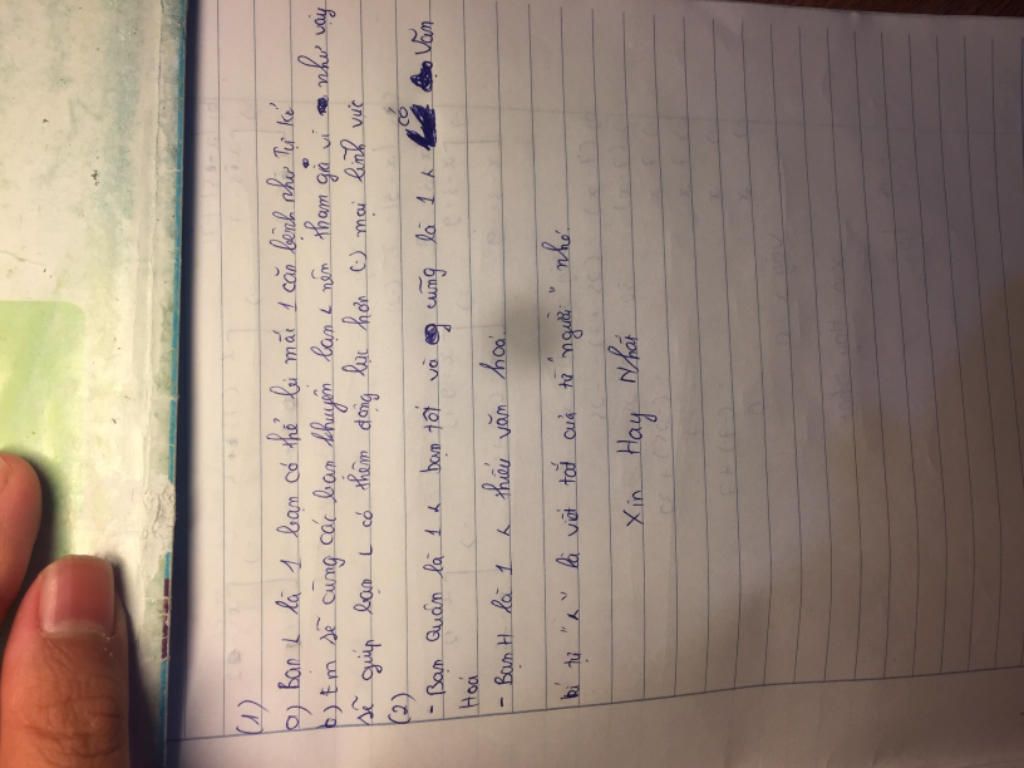 (1)
a) Bạn L là 1 bạn có thể bị mắc 1 căn bệnh như tự kỉ
b) Em sẽ cùng các bạn khuyên bạn L nên tham gia vì như vậy
sẽ giúp bạn L có thêm động lực hơn (-) mọi lĩnh vực
(2)
- Bạn Quân là 1 ʌ bạn tốt và cũng là 1 ʌ có văn
Hoá
- Bạn H là 1 ʌ thiếu văn hoá.
kí tự "ʌ" là viết tắt của từ "người" nhé.
Xin Hay Nhất